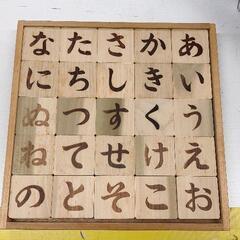 なたさかあ
にちしきい
ぬつすくう
ねてせけえ
のとそこお